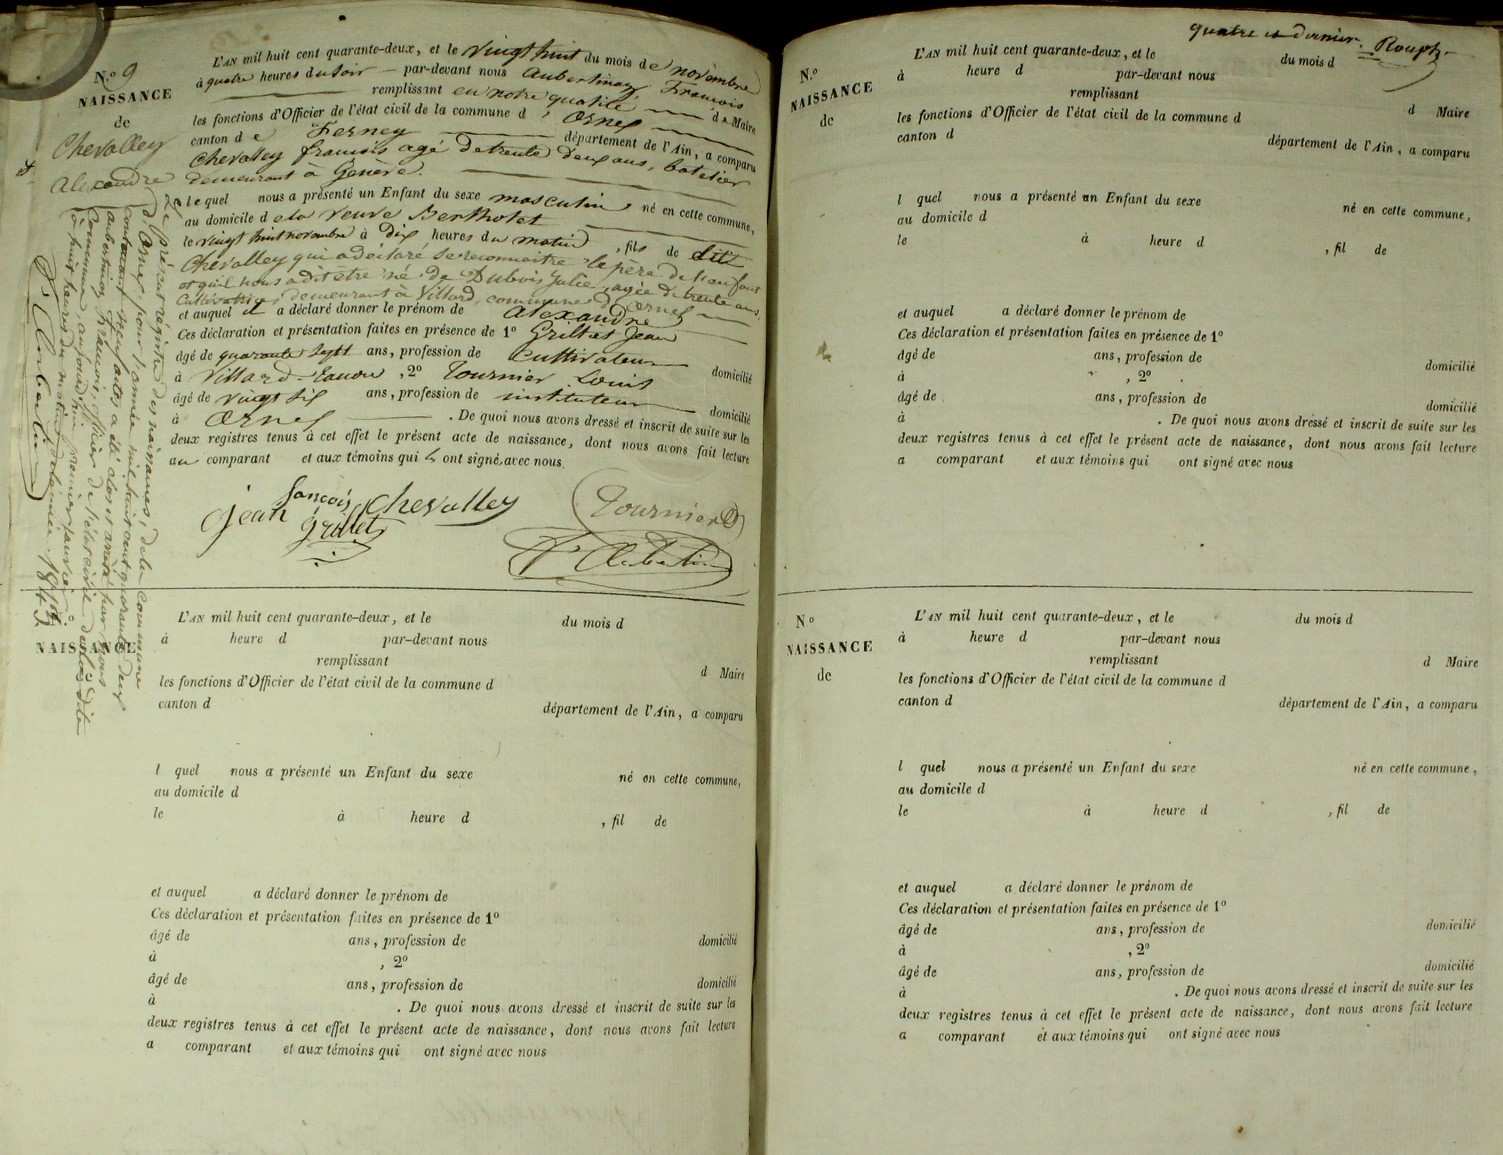 N.º 9
NAISSANCE
de
Chevalley
Alexandre
L'AN mil huit cent quarante-deux, et le vingt huit du mois de novembre
à quatre heures du soir par-devant nous Aubertinay, François
remplissant en notre qualité de Maire
les fonctions d'Officier de l'état civil de la commune d'Ornex
canton de Ferney département de l'Ain, a comparu
Chevalley françois agé de trente deux ans, batelier
demeurant à Genève.
lequel nous a présenté un Enfant du sexe masculin né en cette commune,
au domicile de la veuve Bertholet
le vingt huit novembre à dix heures du matin, fils de dit
Chevalley qui a déclaré se reconnaitre le père de l'enfant
et qu'il nous a dit être né de Dubois Julie, agée de trente ans,
Cultivatrice demeurant à Villard, commune d'Ornex
et auquel il a déclaré donner le prénom de Alexandre
Ces déclaration et présentation faites en présence de 1º Grillet Jean
âgé de quarante sept ans, profession de Cultivateur domicilié
à Villard , 2º Tournier Louis
âgé de vingt six ans, profession de instituteur domicilié
à Ornex . De quoi nous avons dressé et inscrit de suite sur les
deux registres tenus à cet effet le présent acte de naissance, dont nous avons fait lecture
au comparant et aux témoins qui ont signé avec nous
françois Chevalley
Jean Grillet
Tournier
Le présent registre des naissances, de la commune
d'Ornex, pour l'année mil huit cent quarante deux
contenant neuf actes a été clos et arrêté par nous
Aubertinay François, officier de l'état civil de la dite
Commune aujourd'hui premier janvier
à huit heures du matin 1843
N.º
NAISSANCE
L'AN mil huit cent quarante-deux, et le du mois d
à heure d par-devant nous
remplissant
d Maire
les fonctions d'Officier de l'état civil de la commune d
canton d département de l'Ain, a comparu
l quel nous a présenté un Enfant du sexe né en cette commune,
au domicile d
le à heure d , fil de
et auquel a déclaré donner le prénom de
Ces déclaration et présentation faites en présence de 1º
âgé de ans, profession de domicilié
à , 2º
âgé de ans, profession de domicilié
à . De quoi nous avons dressé et inscrit de suite sur les
deux registres tenus à cet effet le présent acte de naissance, dont nous avons fait lecture
a comparant et aux témoins qui ont signé avec nous
quatre et dernier.
N.º
NAISSANCE
de
L'AN mil huit cent quarante-deux, et le du mois d
à heure d par-devant nous
remplissant
d Maire
les fonctions d'Officier de l'état civil de la commune d
canton d département de l'Ain, a comparu
l quel nous a présenté un Enfant du sexe né en cette commune,
au domicile d
le à heure d , fil de
et auquel a déclaré donner le prénom de
Ces déclaration et présentation faites en présence de 1º
âgé de ans, profession de domicilié
à , 2º
âgé de ans, profession de domicilié
à . De quoi nous avons dressé et inscrit de suite sur les
deux registres tenus à cet effet le présent acte de naissance, dont nous avons fait lecture
a comparant et aux témoins qui ont signé avec nous
Nº
NAISSANCE
de
L'AN mil huit cent quarante-deux, et le du mois d
à heure d par-devant nous
remplissant
d Maire
les fonctions d'Officier de l'état civil de la commune d
canton d département de l'Ain, a comparu
l quel nous a présenté un Enfant du sexe né en cette commune,
au domicile d
le à heure d , fil de
et auquel a déclaré donner le prénom de
Ces déclaration et présentation faites en présence de 1º
âgé de ans, profession de domicilié
à , 2º
âgé de ans, profession de domicilié
à . De quoi nous avons dressé et inscrit de suite sur les
deux registres tenus à cet effet le présent acte de naissance, dont nous avons fait lecture
a comparant et aux témoins qui ont signé avec nous